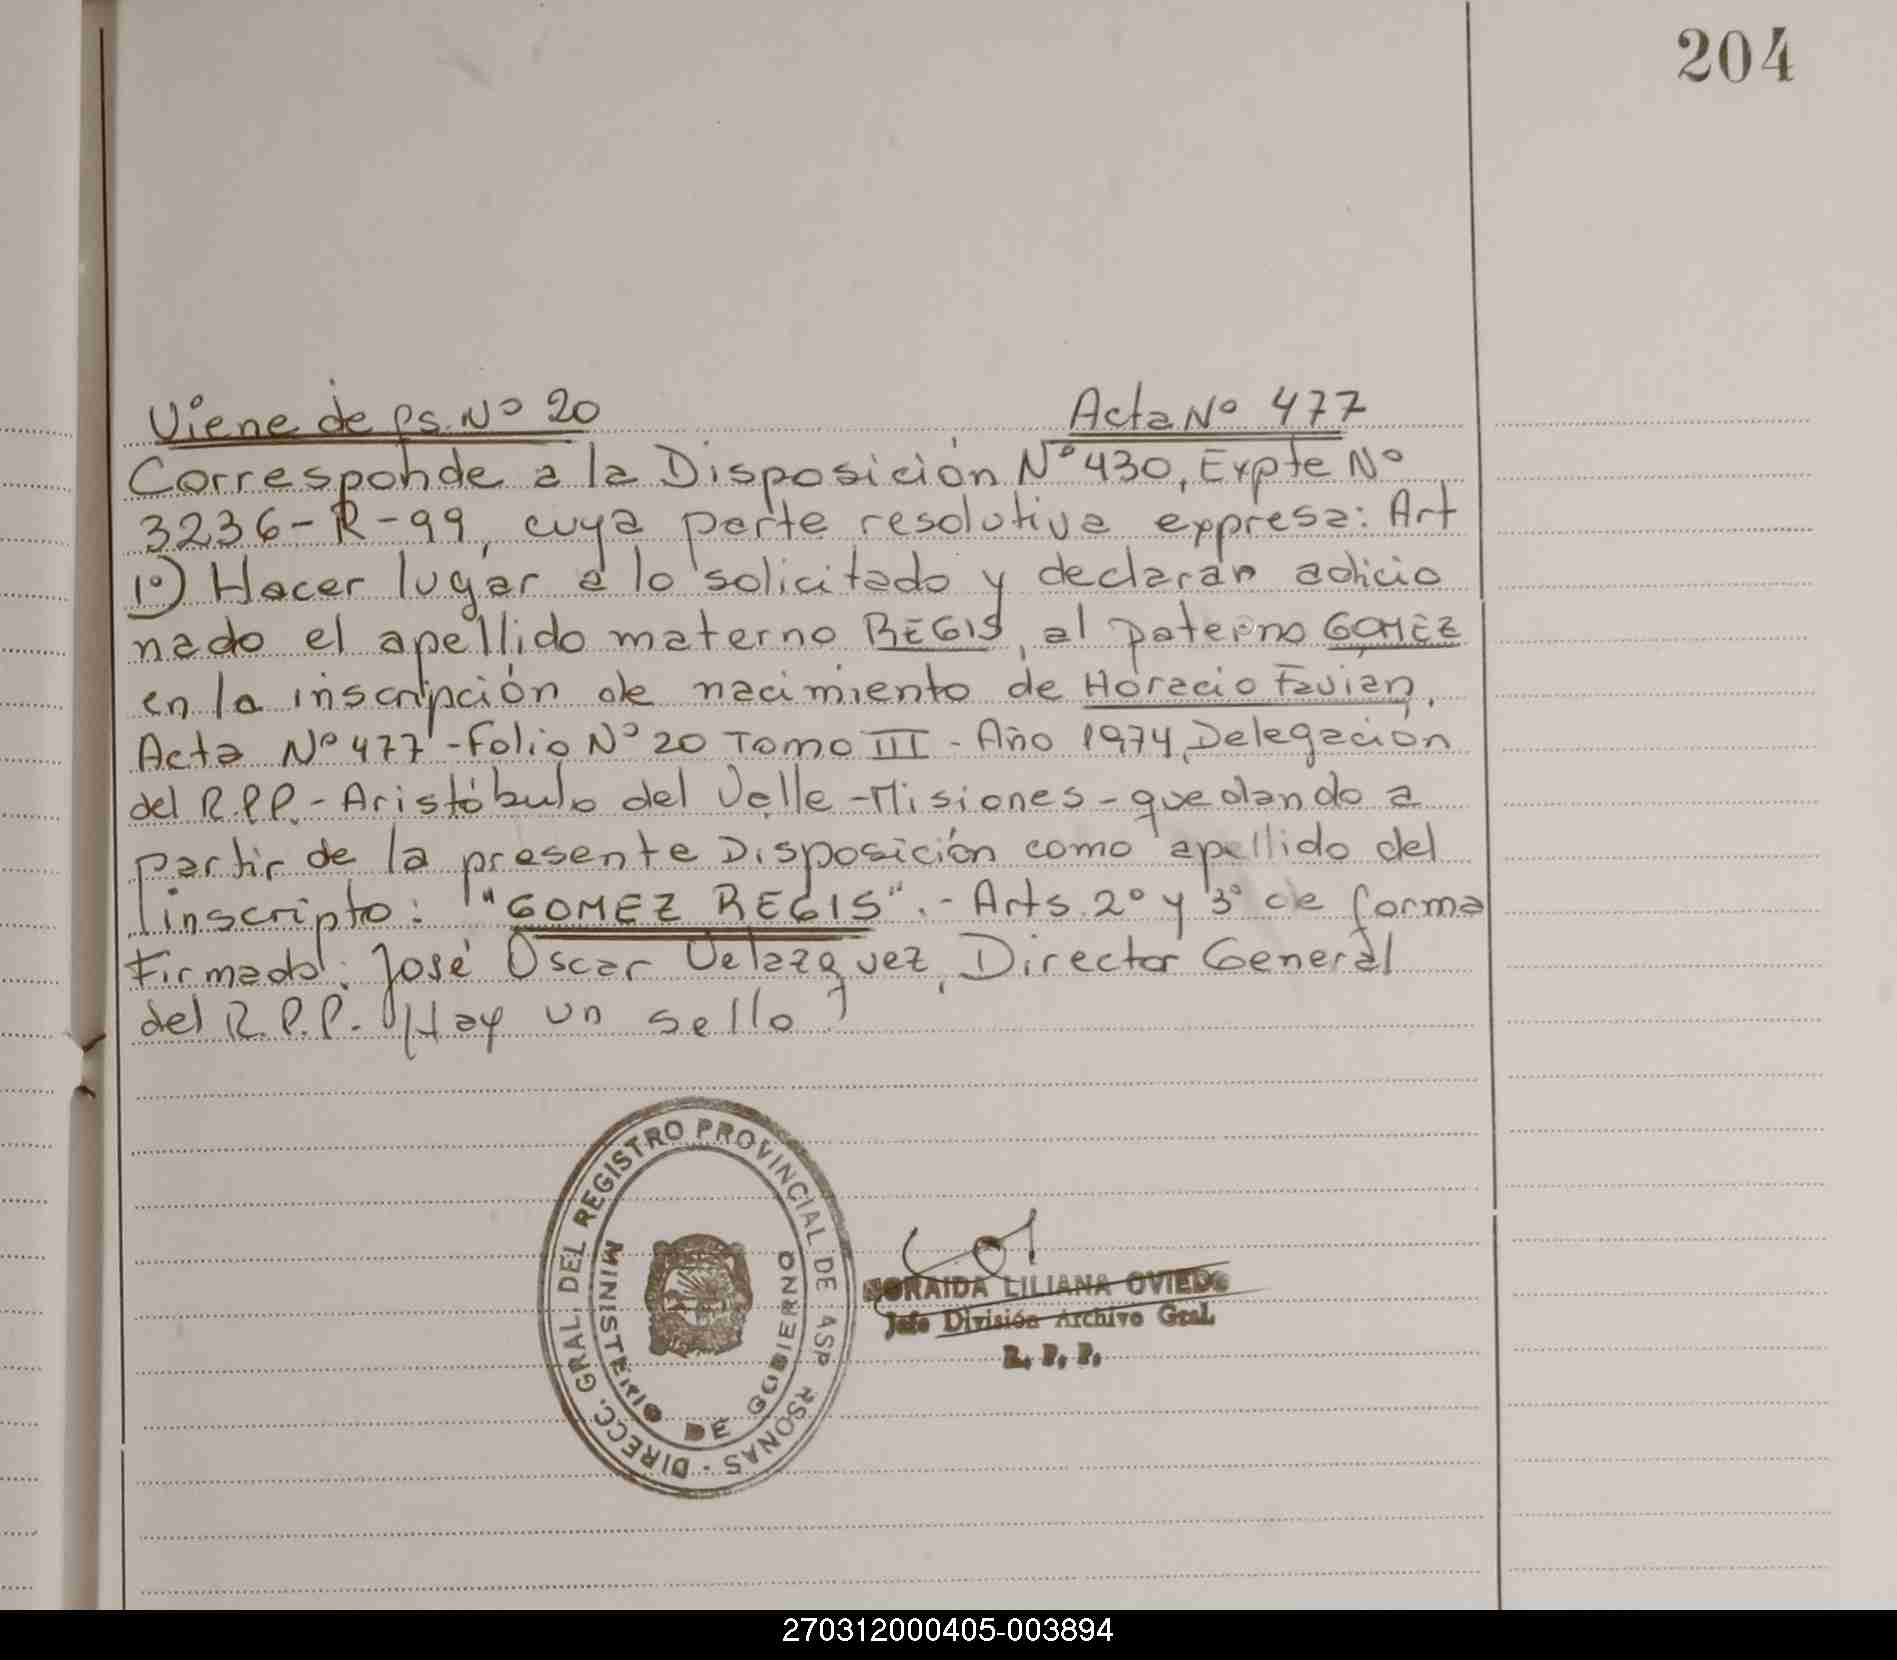 204
Viene de fs. Nº 20 Acta Nº 477
Corresponde a la Disposición Nº 430, Expte Nº
3236-R-99, cuya parte resolutiva expresa: Art
1º) Hacer lugar a lo solicitado y declarar adicio
nado el apellido materno REGIS, al paterno GOMEZ
en la inscripción de nacimiento de Horacio Favian.
Acta Nº 477 - Folio Nº 20 Tomo III - Año 1974, Delegación
del R.P.P. - Aristóbulo del Valle - Misiones - quedando a
partir de la presente Disposición como apellido del
inscripto: "GOMEZ REGIS".- Arts. 2º y 3º de forma
Firmado: José Oscar Velazquez, Director General
del R.P.P. Hay un sello
DIRECC. GRAL. DEL REGISTRO PROVINCIAL DE ASP RSONAS -
MINISTERIO DE GOBIERNO
SORAIDA LILIANA OVIEDO
Jefe División Archivo Gral.
R. P. P.
270312000405-003894